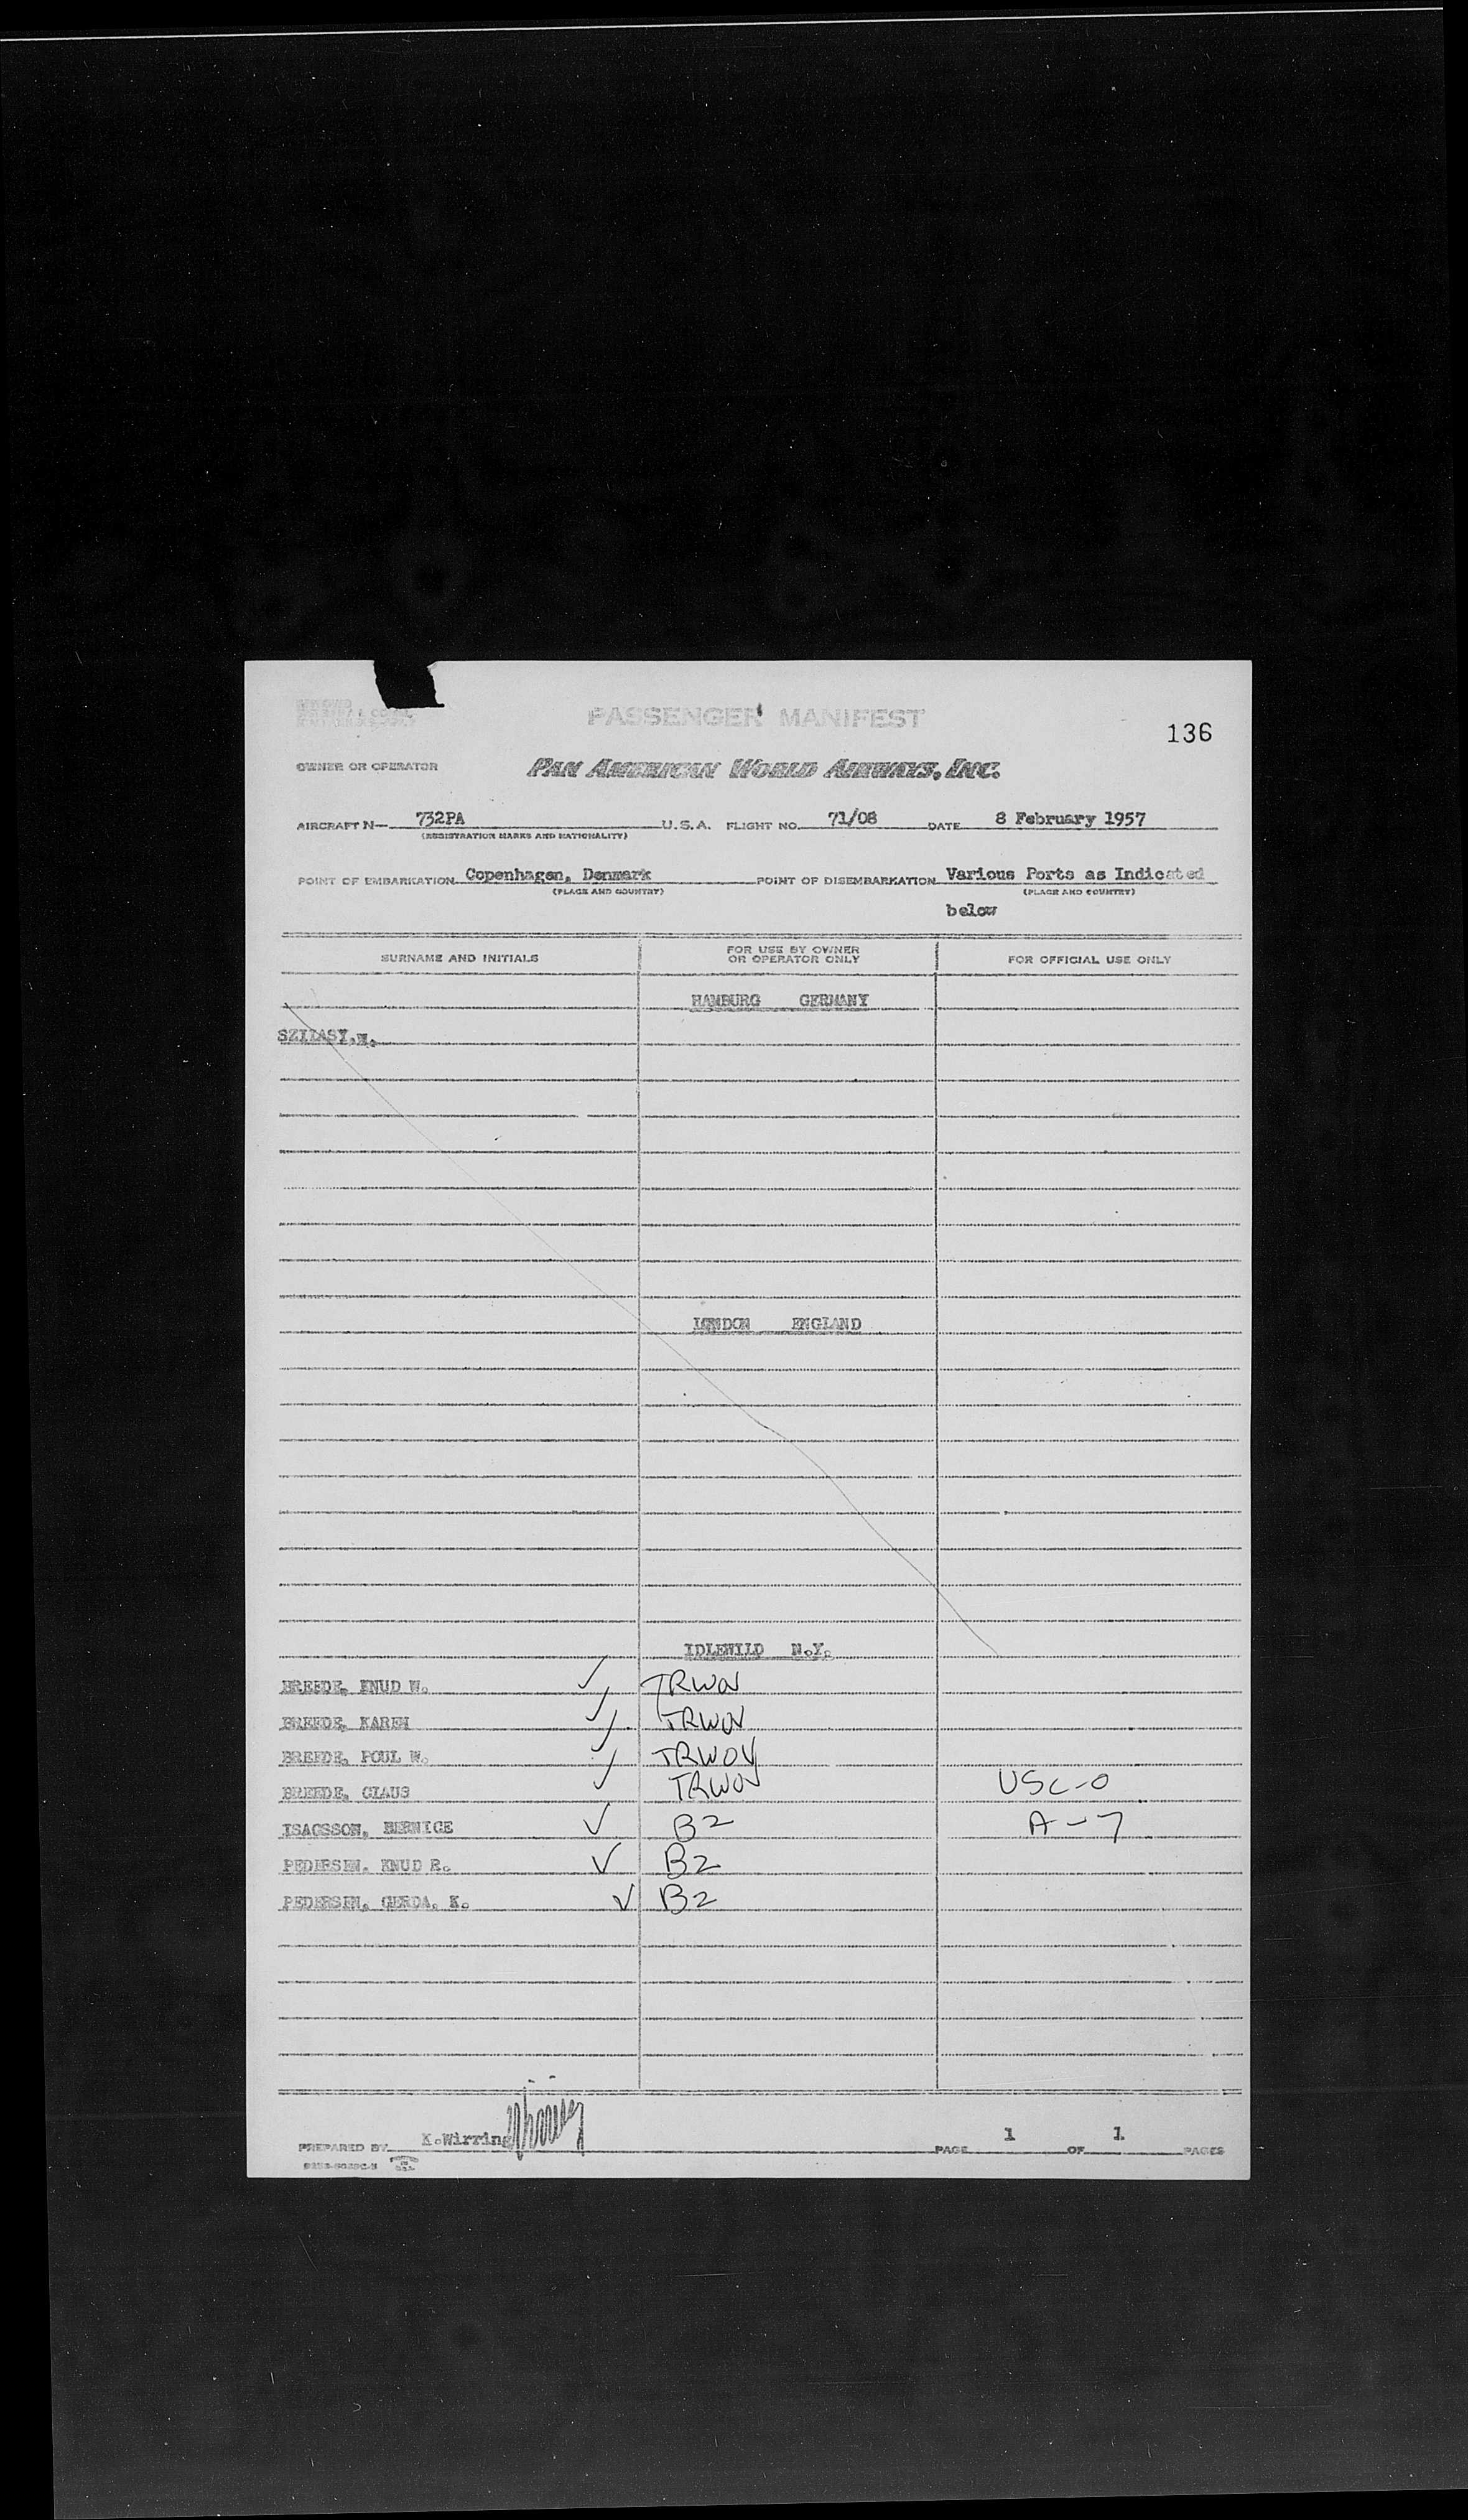 PASSENGER MANIFEST
136
OWNER OR OPERATOR PAN AMERICAN WORLD AIRWAYS, INC.
AIRCRAFT N— 732PA U.S.A. FLIGHT NO. 71/08 DATE 8 February 1957
(REGISTRATION MARKS AND NATIONALITY)
POINT OF EMBARKATION Copenhagen, Denmark POINT OF DISEMBARKATION Various Ports as Indicated
(PLACE AND COUNTRY) (PLACE AND COUNTRY)
below
SURNAME AND INITIALS FOR USE BY OWNER OR OPERATOR ONLY FOR OFFICIAL USE ONLY
HAMBURG GERMANY
SZILASY.W.
LONDON ENGLAND
IDLEWILD N.Y.
BREEDE, KNUD W. ✓ TRWOV
BREEDE, KAREN ✓ TRWOV
BREEDE, POUL W. ✓ TRWOV
BREEDE, CLAUS ✓ TRWOV USC-0
ISACSSON, BERNICE ✓ B2 A-7
PEDERSEN. KNUD R. ✓ B2
PEDERSEN, GERDA. K. ✓ B2
PREPARED BY K.Wirring PAGE 1 OF 1 PAGES